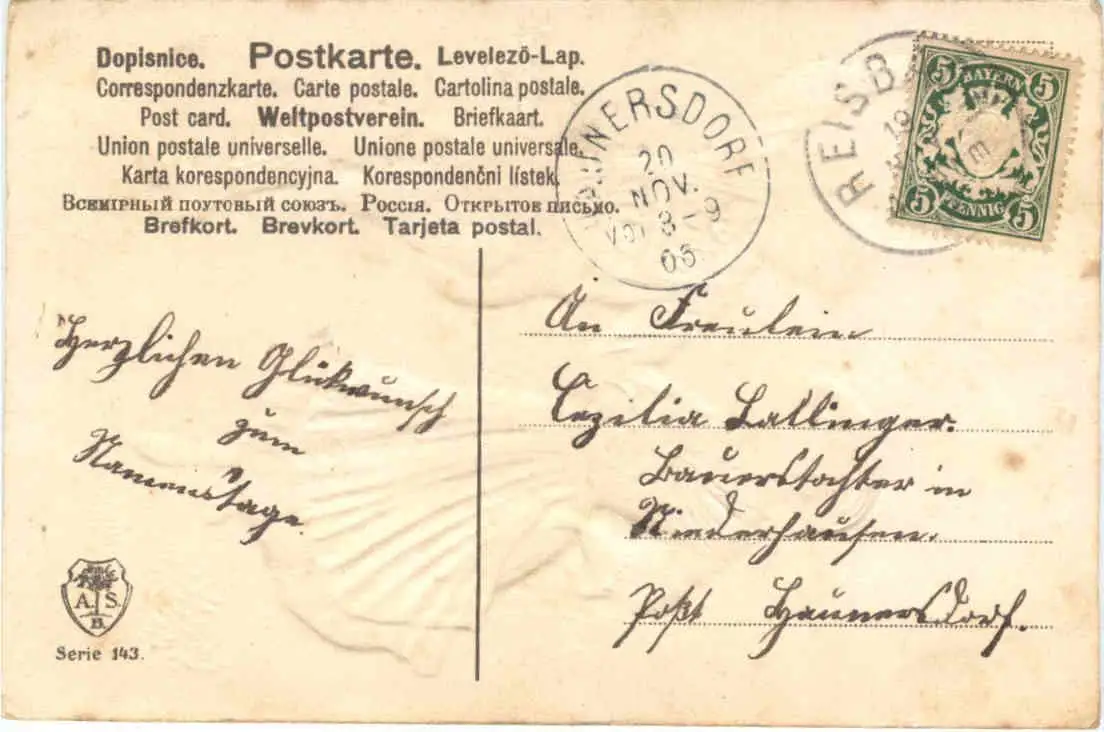 Dopisnice. Postkarte. Levelező-Lap.
Correspondenzkarte. Carte postale. Cartolina postale.
Post card. Weltpostverein. Briefkaart.
Union postale universelle. Unione postale universale.
Karta korespondencyjna. Korespondenčni lístek.
Всемірный поутовый союзъ. Россія. Открытое письмо.
Brefkort. Brevkort. Tarjeta postal.
HAUNERSDORF
20
NOV.
Vor 8-9
05
REISB
BAYERN
5 5
5 5
PFENNIG
Herzlichen Glückwunsch
zum
Namenstage
An Fräulein
Cezilia Lallinger.
Bauerstochter in
Niederhausen.
Poßt Haunersdorf.
A. S.
B.
Serie 143.